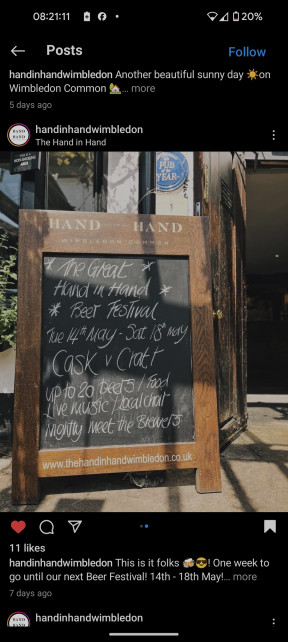 08:21:11
20%
Posts
Follow
handinhandwimbledon Another beautiful sunny day ☀️on
Wimbledon Common 🏡... more
5 days ago
HAND
HAND
handinhandwimbledon
The Hand in Hand
PUB
OF THE
YEAR
HAND HAND
WIMBLEDON COMMON
* The Great *
Hand in Hand *
* Beer Festival
Tue 14th May - Sat 18th May
Cask v Craft
up to 20 beers / Food
Live music / local chat
Nightly meet the Brewers
www.thehandinhandwimbledon.co.uk
11 likes
handinhandwimbledon This is it folks 🍻😎! One week to
go until our next Beer Festival! 14th - 18th May!... more
7 days ago
handinhandwimbledon